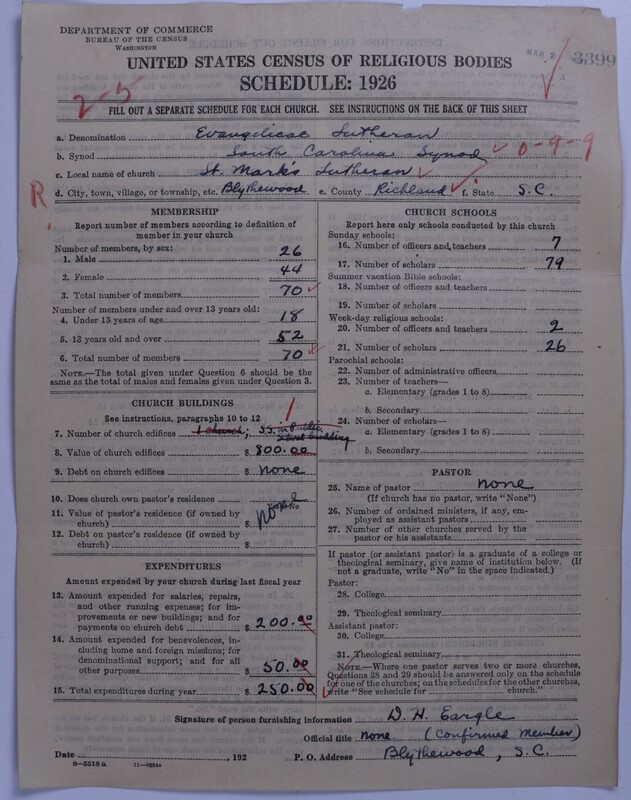 DEPARTMENT OF COMMERCE
BUREAU OF THE CENSUS
WASHINGTON
3399
UNITED STATES CENSUS OF RELIGIOUS BODIES
SCHEDULE: 1926
2-5
FILL OUT A SEPARATE SCHEDULE FOR EACH CHURCH. SEE INSTRUCTIONS ON THE BACK OF THIS SHEET
a. Denomination Evangelical Lutheran
b. Synod South Carolina Synod 0-9-9
c. Local name of church St. Mark's Lutheran
R
d. City, town, village, or township, etc. Blythewood e. County Richland f. State S.C.
MEMBERSHIP
Report number of members according to definition of
member in your church
Number of members, by sex:
1. Male 26
2. Female 44
3. Total number of members 70
Number of members under and over 13 years old:
4. Under 13 years of age 18
5. 13 years old and over 52
6. Total number of members 70
NOTE.—The total given under Question 6 should be
same as the total of males and females given under Question 3.
CHURCH BUILDINGS
See instructions, paragraphs 10 to 12
1
7. Number of church edifices 1 church; S.S. in Public
School building
8. Value of church edifices $ 800.00
9. Debt on church edifices $ None
10. Does church own pastor's residence
11. Value of pastor's residence (if owned by
church) $ none
12. Debt on pastor's residence (if owned by
church) $
EXPENDITURES
Amount expended by your church during last fiscal year
13. Amount expended for salaries, repairs,
and other running expenses; for im-
provements or new buildings; and for
payments on church debt $ 200.00
14. Amount expended for benevolences,
including home and foreign missions; for
denominational support; and for all
other purposes $ 50.00
15. Total expenditures during year $ 250.00
CHURCH SCHOOLS
Report here only schools conducted by this church
Sunday schools:
16. Number of officers and teachers 7
17. Number of scholars 79
Summer vacation Bible schools:
18. Number of officers and teachers
19. Number of scholars
Week-day religious schools:
20. Number of officers and teachers 2
21. Number of scholars 26
Parochial schools:
22. Number of administrative officers
23. Number of teachers—
a. Elementary (grades 1 to 8)
b. Secondary
24. Number of scholars—
a. Elementary (grades 1 to 8)
b. Secondary
PASTOR
25. Name of pastor none
(If church has no pastor, write "None")
26. Number of ordained ministers, if any, em-
ployed as assistant pastors
27. Number of other churches served by the
pastor or his assistants
If pastor (or assistant pastor) is a graduate of a college or
theological seminary, give name of institution below. (If
not a graduate, write "No" in the space indicated.)
Pastor:
28. College
29. Theological seminary
Assistant pastor:
30. College
31. Theological seminary
NOTE.—Where one pastor serves two or more churches,
Questions 28 and 29 should be answered only on the schedule
for one of the churches; on the schedules for the other churches,
write "See schedule for church."
Signature of person furnishing information D. H. Eargle
Official title None (Confirmed Member)
Date , 192 P. O. Address Blythewood, S.C.
8-5318 a 11-9984